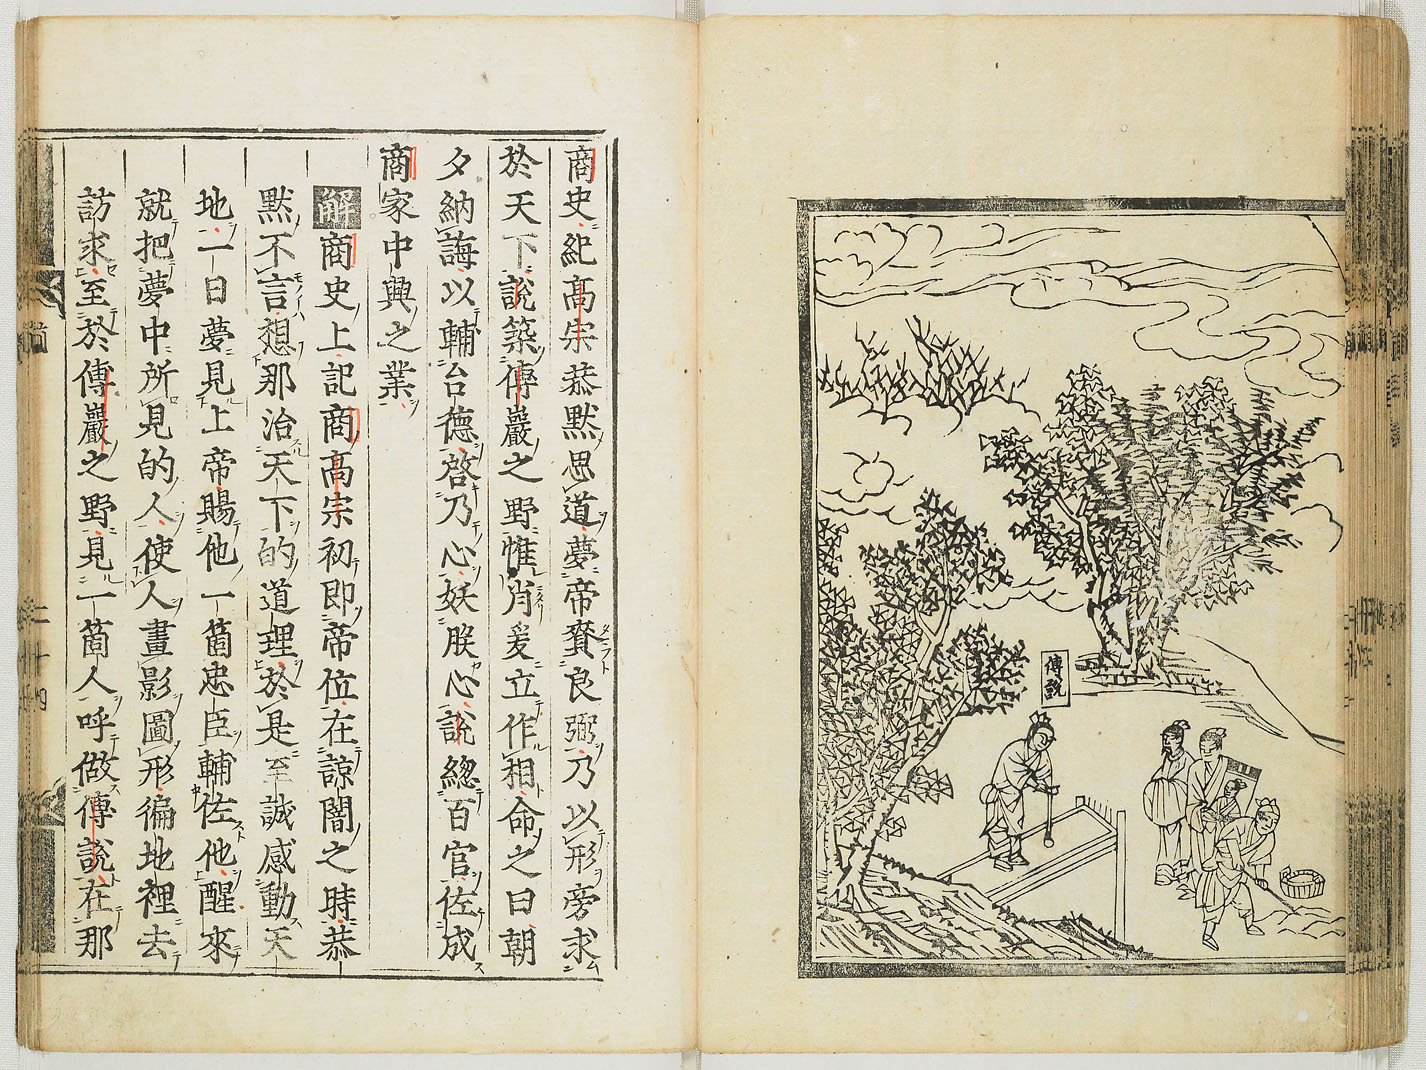 傳說
商史紀高宗恭默思道夢帝賚良弼乃以形旁求
於天下說築傅巖之野惟肖爰立作相命之曰朝
夕納誨以輔台德啓乃心沃朕心說總百官佐成
商家中興之業
解商史上記商高宗初即帝位在諒闇之時恭
默不言想那治天下的道理於是至誠感動天
地一日夢見上帝賜他一箇忠臣輔佐他醒來
就把夢中所見的人使人畫影圖形徧地裡去
訪求至於傅巖之野見一箇人呼做傅說在那